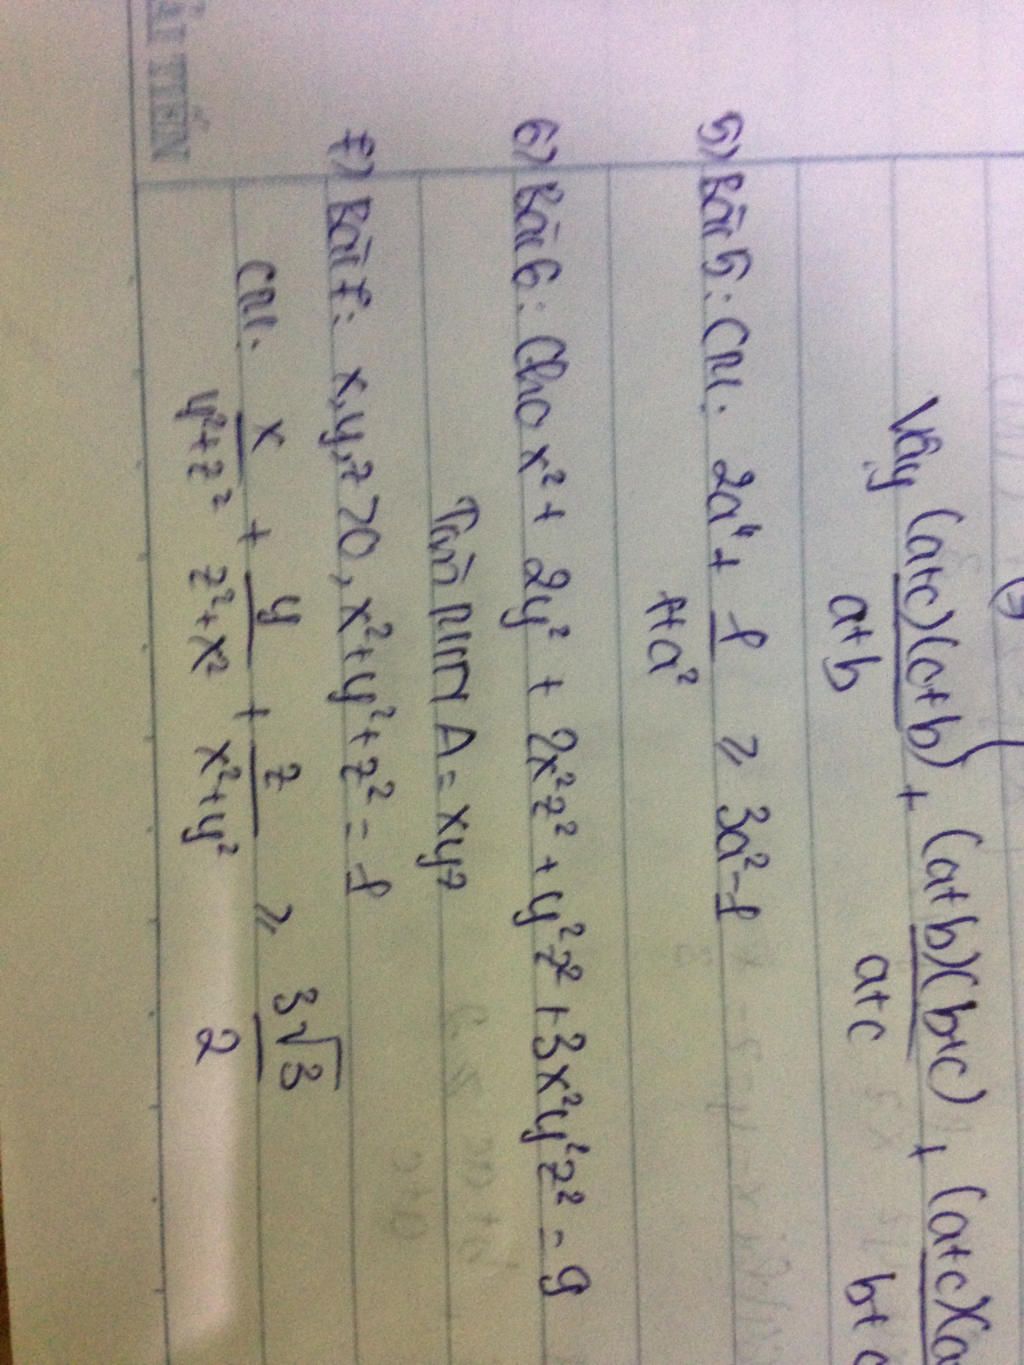 Vậy (a+c)(c+b)/a+b + (a+b)(b+c)/a+c + (a+c)(a
b+c
5) Bài 5: CM. 2a⁴ + 1/1+a² ≥ 3a²-1
6) Bài 6: Cho x² + 2y² + 2x²z² + y²z² + 3x²y²z² = 9
Tìm A = xyz
7) Bài 7: x,y,z >0, x²+y²+z² = 1
CM. x/y²+z² + y/z²+x² + z/x²+y² ≥ 3√3/2
ẢI TIẾN